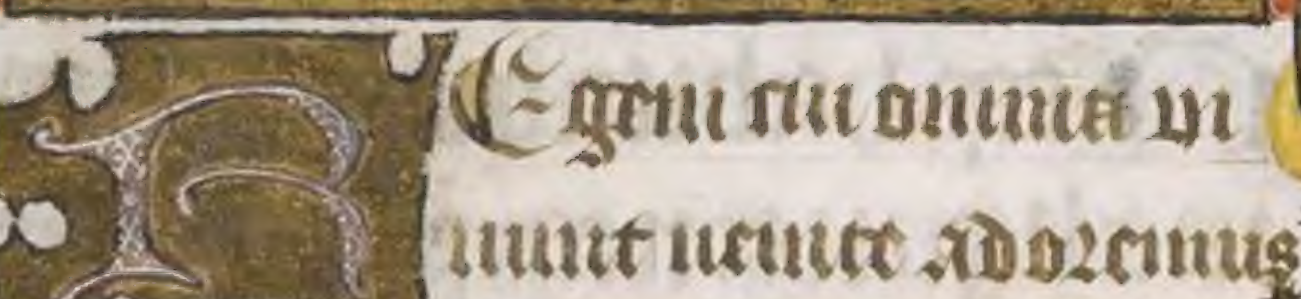 REgem cui omnia vi
uunt uenite adoremus